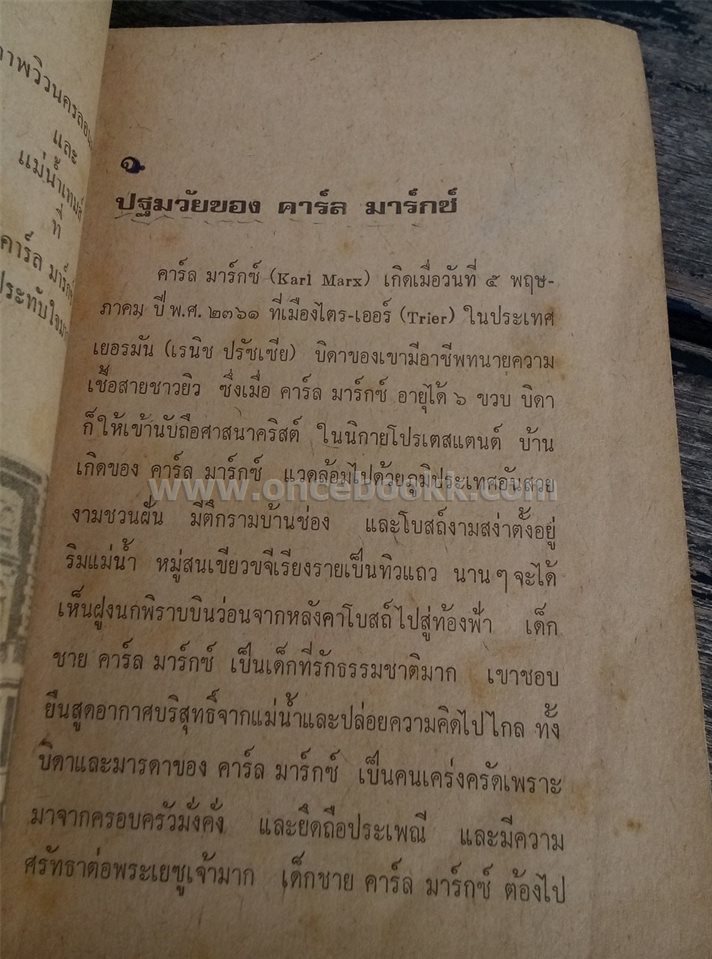 และ
ที่
๑
ปฐมวัยของ คาร์ล มาร์กซ์
คาร์ล มาร์กซ์ (Karl Marx) เกิดเมื่อวันที่ ๕ พฤษ-
ภาคม ปี พ.ศ. ๒๓๖๑ ที่เมืองไตร-เออร์ (Trier) ในประเทศ
เยอรมัน (เรนิช ปรัซเซีย) บิดาของเขามีอาชีพทนายความ
เชื้อสายชาวยิว ซึ่งเมื่อ คาร์ล มาร์กซ์ อายุได้ ๖ ขวบ บิดา
ก็ให้เข้านับถือศาสนาคริสต์ ในนิกายโปรเตสแตนต์ บ้าน
เกิดของ คาร์ล มาร์กซ์ แวดล้อมไปด้วยภูมิประเทศอันสวย
www.oncebookk.com
งามชวนฝัน มีตึกรามบ้านช่อง และโบสถ์งามสง่าตั้งอยู่
ริมแม่น้ำ หมู่สนเขียวขจีเรียงรายเป็นทิวแถว นานๆ จะได้
เห็นฝูงนกพิราบบินว่อนจากหลังคาโบสถ์ไปสู่ท้องฟ้า เด็ก
ชาย คาร์ล มาร์กซ์ เป็นเด็กที่รักธรรมชาติมาก เขาชอบ
ยืนสูดอากาศบริสุทธิ์จากแม่น้ำและปล่อยความคิดไปไกล ทั้ง
บิดาและมารดาของ คาร์ล มาร์กซ์ เป็นคนเคร่งครัดเพราะ
มาจากครอบครัวมั่งคั่ง และยึดถือประเพณี และมีความ
ศรัทธาต่อพระเยซูเจ้ามาก เด็กชาย คาร์ล มาร์กซ์ ต้องไป